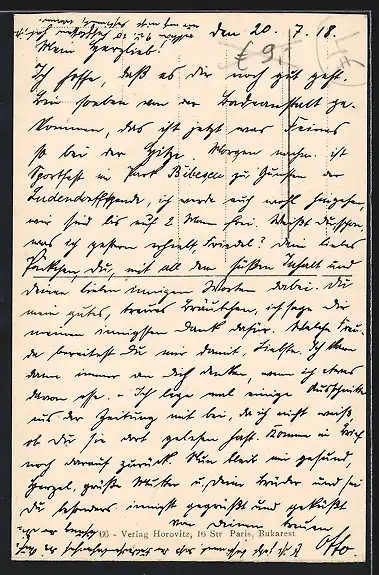 den 20. 7. 18.
Mein Herzlieb!
Ich hoffe, daß es dir noch gut geht.
Bin soeben von der Badeanstalt ge-
kommen, das ist jetzt was Feines
so bei der Hitze. Morgen nachm. ist
Sportfest im Park Bibescu zu Gunsten der
Ludendorffspende, ich werde auch wohl hingehen,
wir sind bis auf 2 Mann frei. Weißt du schon
was ich gestern erhielt, Friedel? Dein liebes
Päckchen, du, mit all dem süßen Inhalt und
deinen lieben innigen Worten dabei. Du
mein gutes, treues Bräutchen, ich sage dir
meinen innigsten Dank dafür. Welche Freu-
de bereitest du mir damit, Liebste. Ich kann
dann immer an dich denken, wenn ich etwas
davon esse. - Ich lege mal einige Ausschnitte
aus der Zeitung mit bei, da ich nicht weiß,
ob du sie dort gelesen hast. Komme im Brief
noch darauf zurück. Nun bleib mir gesund
Herzel, grüße Mutter u. deine Brüder und sei
du besonders innigst gegrüßt und geküßt
von deinem treuen
Otto.
66 - Verlag Horovitz, 16 Str Paris, Bukarest